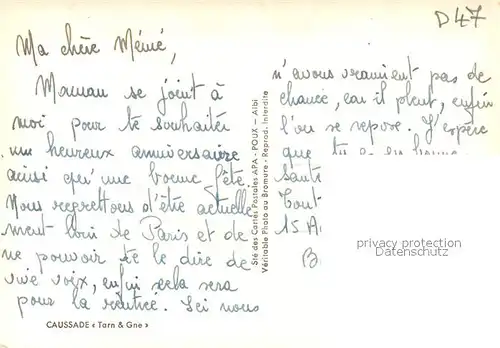 D47
Ma chère Mémé,
Maman se joint à
moi pour te souhaiter
un heureux anniversaire
ainsi qu'une bonne fête.
Nous regrettons d'être actuelle
ment loin de Paris et de
ne pouvoir te le dire de
vive voix, enfin cela sera
pour la rentrée. Ici nous
CAUSSADE « Tarn & Gne »
Sté des Cartes Postales APA - POUX - Albi
Véritable Photo au Bromure - Reprod. Interdite
n'avons vraiment pas de
chance, car il pleut, enfin
l'on se repose. J'espère
que tu es en bonne
santé
Tout
15 A
B
privacy protection
Datenschutz